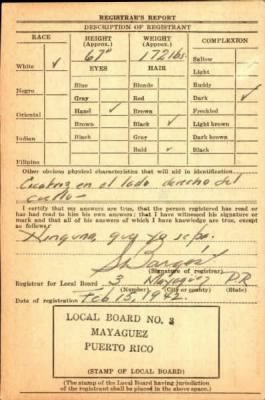 REGISTRAR'S REPORT
DESCRIPTION OF REGISTRANT
RACE HEIGHT (Approx.) WEIGHT (Approx.) COMPLEXION
67" 172 lbs.
White ✓ EYES HAIR Sallow
Light
Negro Blue Blonde Ruddy
Gray Red Dark ✓
Oriental Hazel ✓ Brown Freckled
Brown Black ✓ Light brown
Indian Black Gray Dark brown
Bald ✓ Black
Filipino
Other obvious physical characteristics that will aid in identification
Cicatriz en el lado derecho del
I certify that my answers are true, that the person registered has read or
has had read to him his own answers; that I have witnessed his signature
or mark and that all of his answers of which I have knowledge are true, except
as follows:
Ninguna, que yo sepa.
(Signature of registrar)
Registrar for Local Board 3 Mayaguez P.R.
(Number) (City or county) (State)
Date of registration Feb 15, 1942
LOCAL BOARD NO. 3
MAYAGUEZ
PUERTO RICO
(STAMP OF LOCAL BOARD)
(The stamp of the Local Board having jurisdiction
of the registrant shall be placed in the above space.)